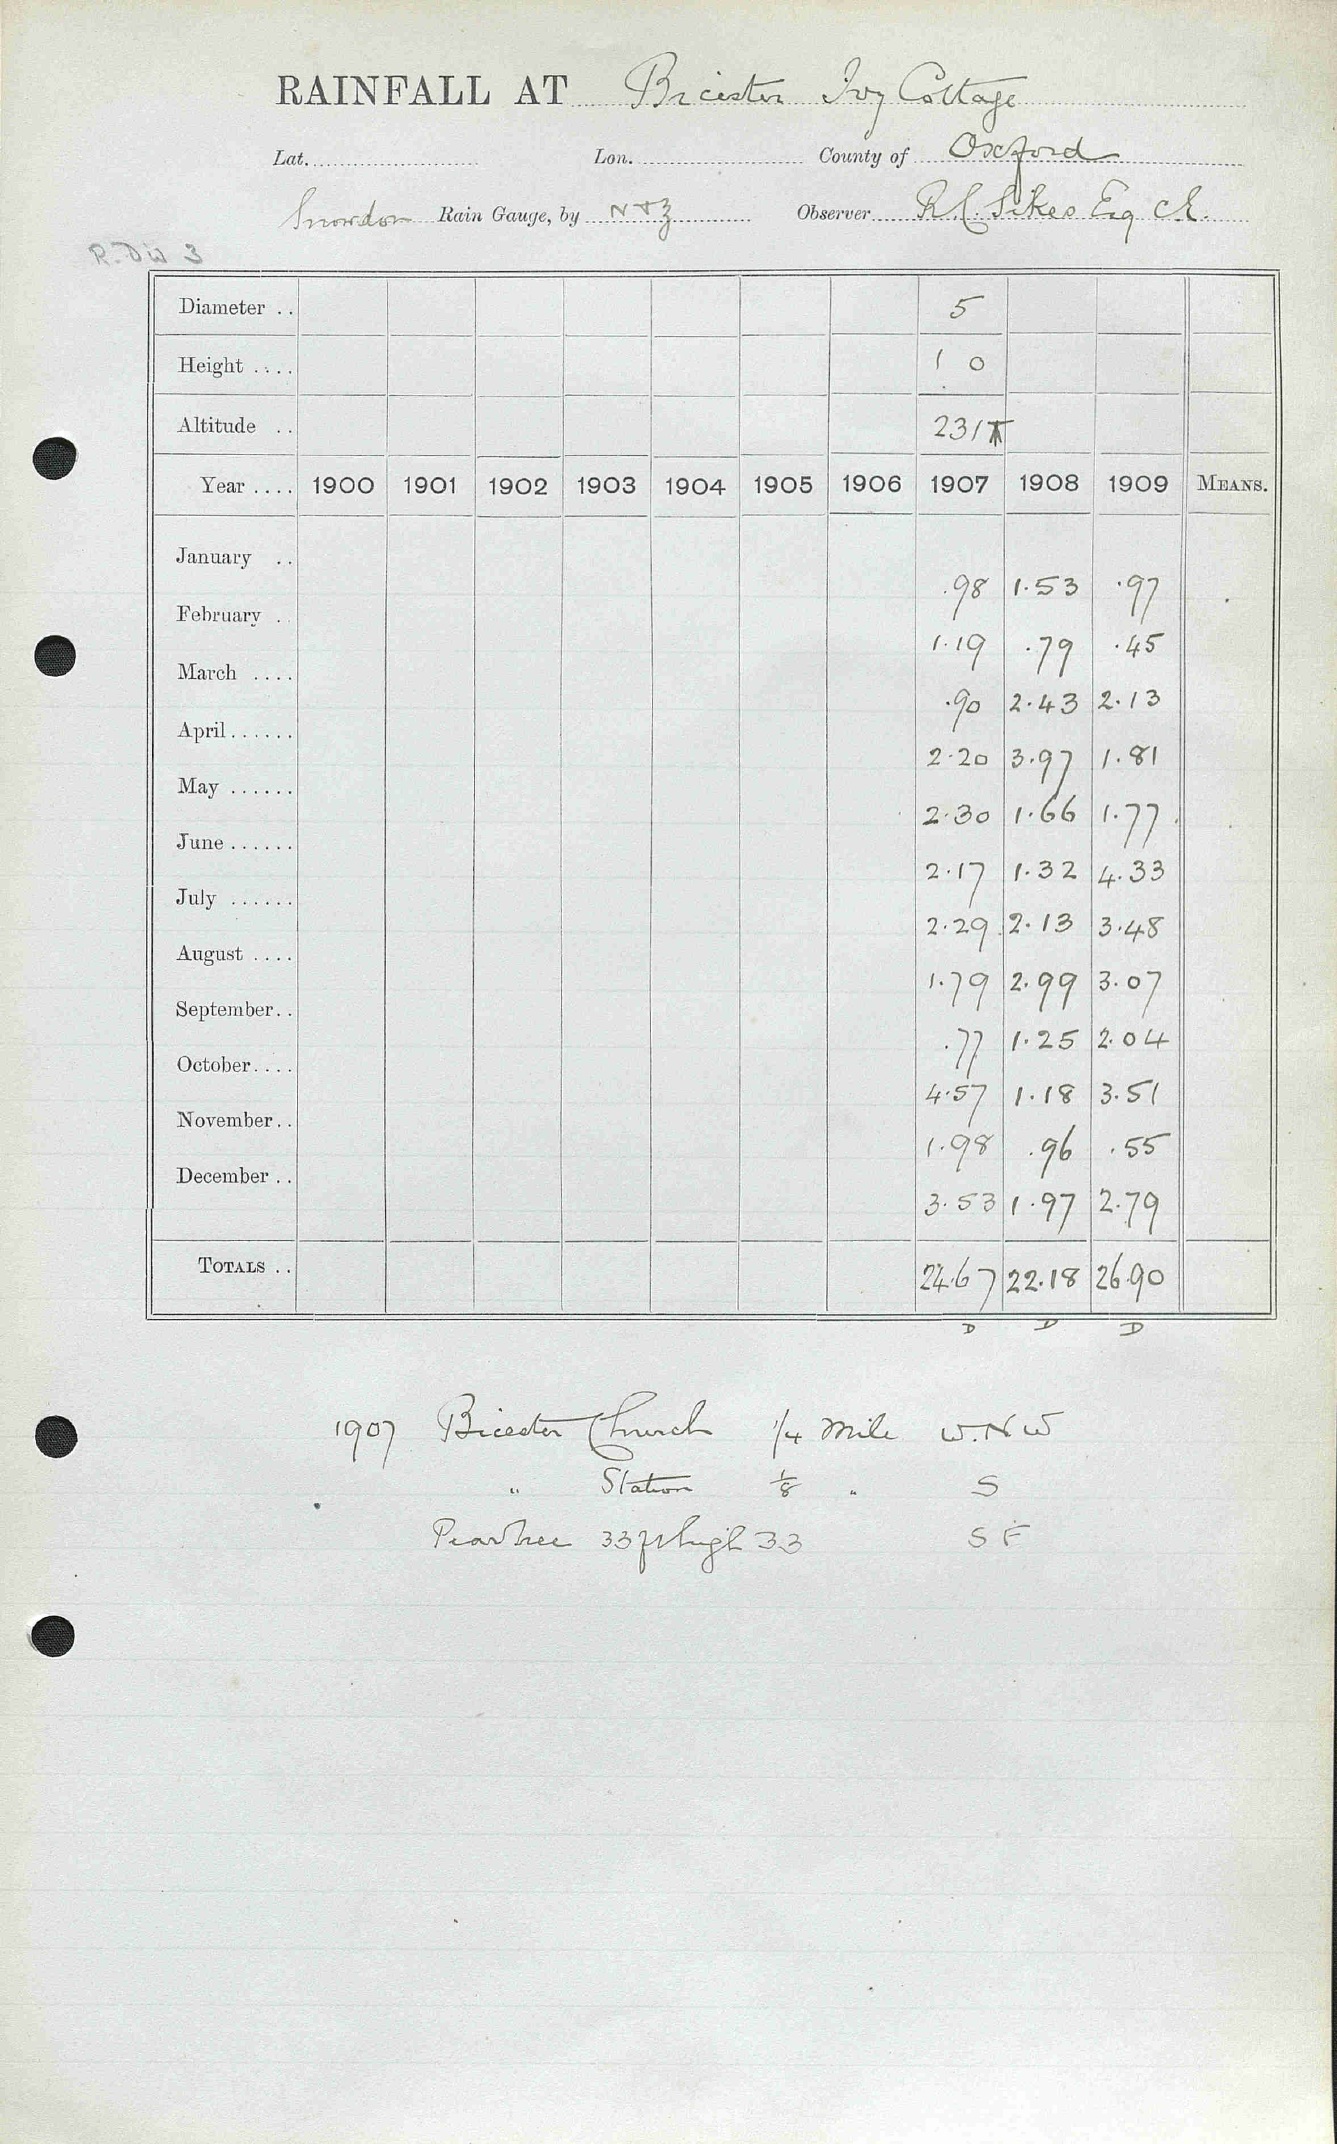 RAINFALL AT Bicester Ivy Cottage
Lat. Lon. County of Oxford
Snowdon Rain Gauge, by N & Z Observer R.C. Sikes Esq C.E.
R. Div 3
Diameter .. 5
Height .... 1 0
Altitude .. 231 T
Year .... 1900 1901 1902 1903 1904 1905 1906 1907 1908 1909 MEANS.
January .. .98 1.53 .97
February . 1.19 .79 .45
March .... .90 2.43 2.13
April...... 2.20 3.97 1.81
May ...... 2.30 1.66 1.77
June ...... 2.17 1.32 4.33
July ...... 2.29 2.13 3.48
August .... 1.79 2.99 3.07
September.. .77 1.25 2.04
October.... 4.57 1.18 3.51
November.. 1.98 .96 .55
December .. 3.53 1.97 2.79
TOTALS .. 24.67 22.18 26.90
D D D
1907 Bicester Church 1/4 Mile W.N W
" Station 1/8 " S
Peartree 33 ft high 33 S E